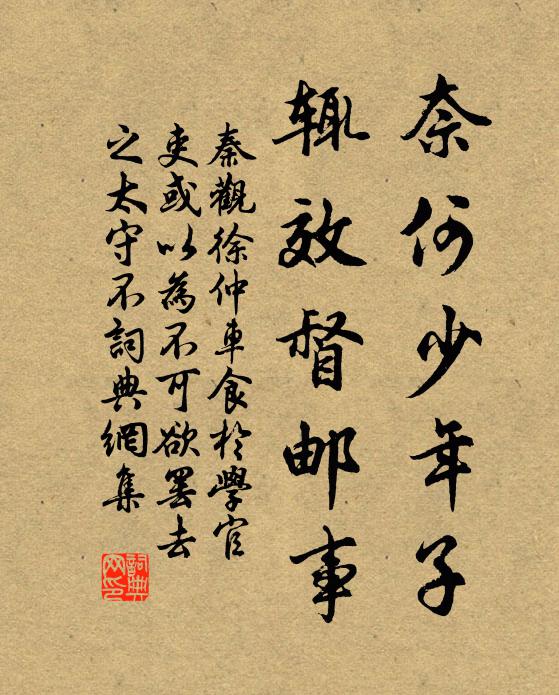 奈何少年子
辄效督邮事
秦觀徐仲車食於學官
吏或以為不可欲罢去
之太守不詞典網集
詞典网印